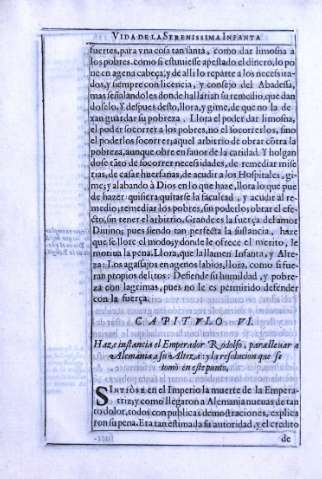 VIDA DE LA SERENISSIMA INFANTA
fuertes, para vna cosa tan santa, como dar limosna a
los pobres. como si estuuiesse apestado el dinero, lo po
ne en agena cabeça; y de alli lo reparte a los necesita-
dos, y siempre con licencia, y consejo del Abadessa,
mas señalandoles donde hallarian su remedio, que dan
doselo. Y despues desto, llora, y gime, de que no la de
xan guardar su pobreza. Llora el poder dar limosna,
el poder socorrer a los pobres, no el socorrerlos, sino
el poderlos socorrer; aquel arbitrio de obrar cõtra la
pobreza, aunque obre en fauor de la caridad. Y holgan
dose tãto de socorrer necessidades, de remediar mise
rias, de casar huerfanas, de acudir a los Hospitales, gi-
me; y alabando à Dios en lo que haze, llora lo que pue
de hazer quisiera quitarse la facultad, y acudir al re-
medio; remediar los pobres, sin poderlos; obrar el efe-
cto, sin tener el arbitrio. Grande es la fuerça del amor
Diuino, pues siendo tan perfecta la sustancia, haze
que se llore el modo; y donde le ofrece el merito, le
motiua la pena. Llora, que la llamen Infanta, y Alte-
za: Los agassajos en agenos labios, llora, como si fue-
ran propios delitos: Defiende su humildad, y pobre-
za con lagrimas, pues no le es permitido defender
con la fuerça.
CAPITVLO VI.
Haze instancia el Emperador Rodolfo, para lleuar a
Alemania a su Alteza: y la resolucion que se
tomò en este punto.
SINTIOSE en el Imperio la muerte de la Empera-
triz, y como llegaron a Alemania nueuas de tan
to dolor, todos con publicas demostraciones, explica
ron su pena. Era tan estimada su autoridad, y el credito
de